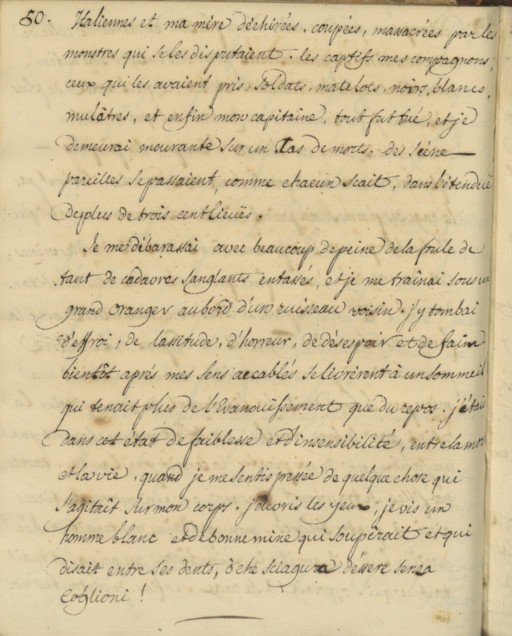 50. Italiennes et ma mère déchirées, coupées, massacrées par les
monstres qui se les disputaient. les captifs mes compagnons,
ceux qui les avaient pris, soldats, matelots, noirs, blancs,
mulâtres, et enfin mon capitaine, tout fut tué, et je
demeurai mourante sur un tas de morts. des scène
pareilles se passaient, comme chacun scait, dans l'étenduë
de plus de trois cent lieuës.
Je me débarassai avec beaucoup de peine de la foule de
tant de cadavres sanglants entassés, et je me trainai sous un
grand oranger au bord d'un ruisseau voisin. j'y tombai
d'effroi, de lassitude, d'horreur, de désespoir et de faim
bientôt après mes sens accablés se livrèrent à un sommeil
qui tenait plus de l'Evanouissement que du repos. j'étais
dans cet état de faiblesse et d'insensibilité, entre la mort
et la vie, quand je me sentis pressée de quelque chose qui
s'agitait sur mon corps. j'ouvris les yeux, je vis un
homme blanc et de bonne mine qui soupirait et qui
disait entre ses dents, ô che sciagura d'essere senza
Coglioni!